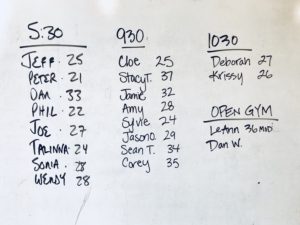 5:30
JEFF. 25
PETER. 21
DAN. 33
PHIL. 22
JOE. 27
TALINNA. 24
SONIA. 28
WENDY 28
930
Cloe 25
Stacy T. 37
Jamie 32
Amy 28
Sylvie 24
Jason D. 29
Sean T. 34
Corey 35
1030
Deborah 27
Krissy 26
OPEN GYM
LeAnn 36
Dan W.